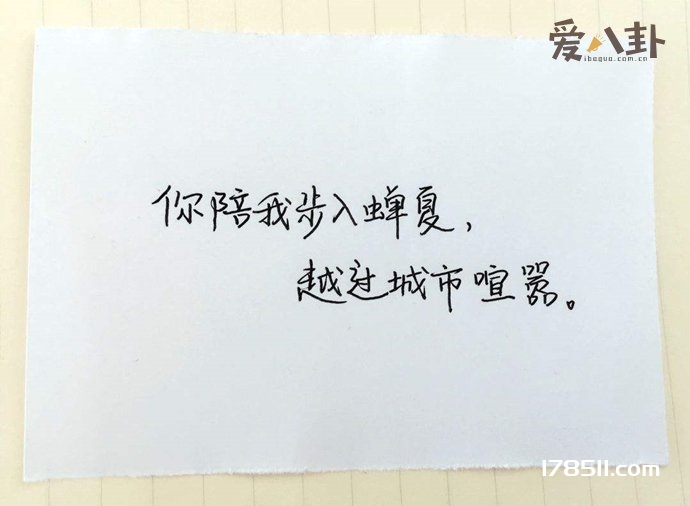 爱八卦
ibagua.com.cn
你陪我步入蝉夏，
越过城市喧嚣。
178511.com